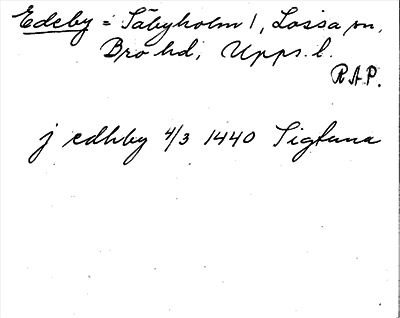 Edeby = Säbyholm 1, Lossa sn,
Bro hd, Upps. l.
R A P.
j edhby 4/3 1440 Sigtuna